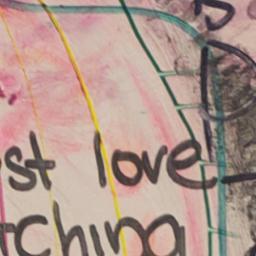 st love
ching